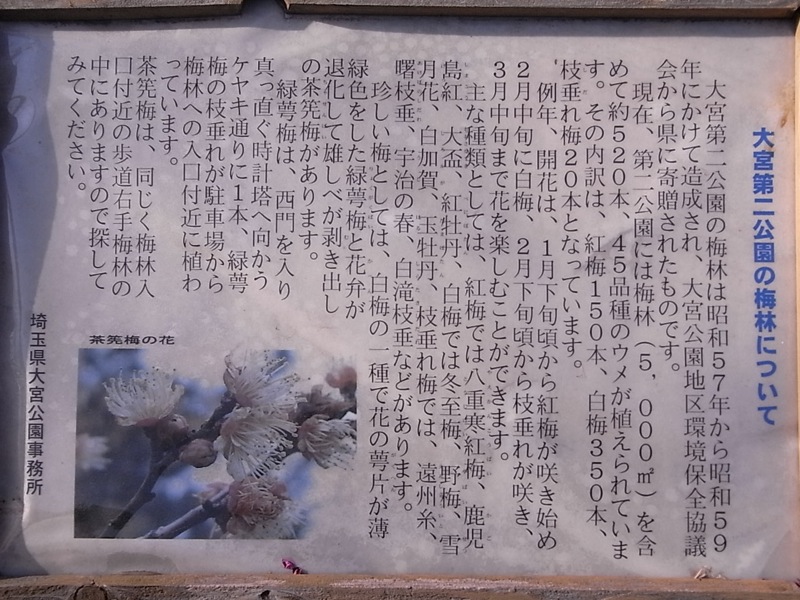 大宮第二公園の梅林について
大宮第二公園の梅林は昭和57年から昭和59
年にかけて造成され、大宮公園地区環境保全協議
会から県に寄贈されたものです。
現在、第二公園には梅林(5,000㎡)を含
めて約520本、45品種のウメが植えられていま
す。その内訳は、紅梅150本、白梅350本、
枝垂れ梅20本となっています。
例年、開花は、1月下旬頃から紅梅が咲き始め
2月中旬に白梅、2月下旬頃から枝垂れが咲き、
3月中旬まで花を楽しむことができます。
主な種類としては、紅梅では八重寒紅梅、鹿児
島紅、大盃、紅牡丹、白梅では冬至梅、野梅、雪
月花、白加賀、玉牡丹、枝垂れ梅では、遠州糸、
曙枝垂、宇治の春、白滝枝垂などがあります。
珍しい梅としては、白梅の一種で花の萼片が薄
緑色をした緑萼梅と花弁が
退化して雄しべが剥き出し
の茶筅梅があります。
緑萼梅は、西門を入り
真っ直ぐ時計塔へ向かう
ケヤキ通りに1本、緑萼
梅の枝垂れが駐車場から
梅林への入口付近に植わ
っています。
茶筅梅は、同じく梅林入
口付近の歩道右手梅林の
中にありますので探して
みてください。
茶筅梅の花
埼玉県大宮公園事務所